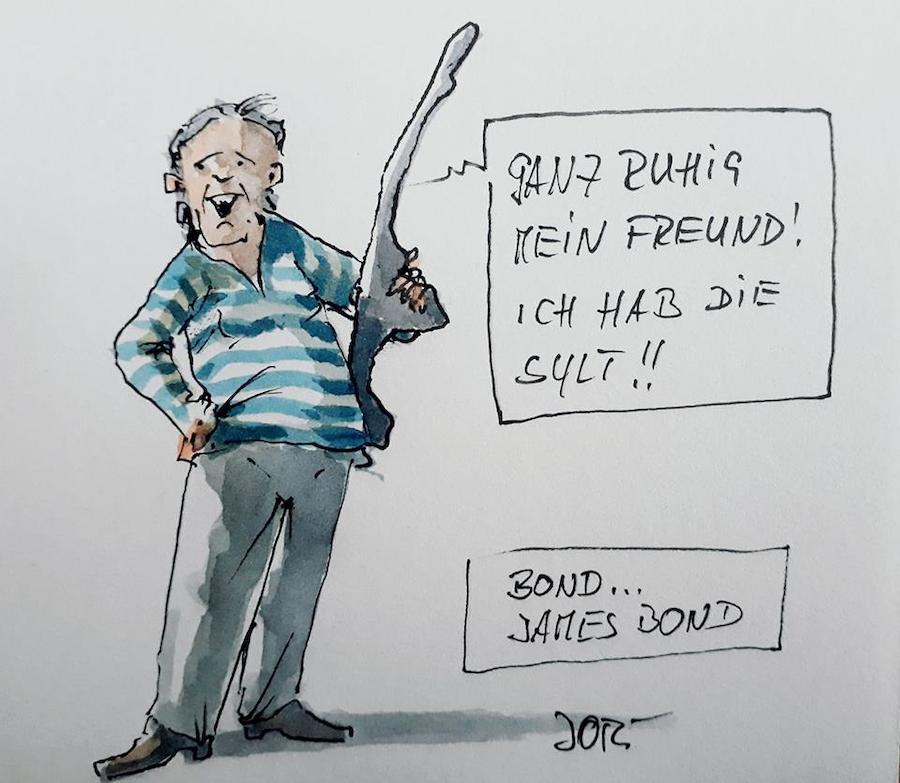 GANZ RUHIG
MEIN FREUND!
ICH HAB DIE
SYLT!!
BOND...
JAMES BOND